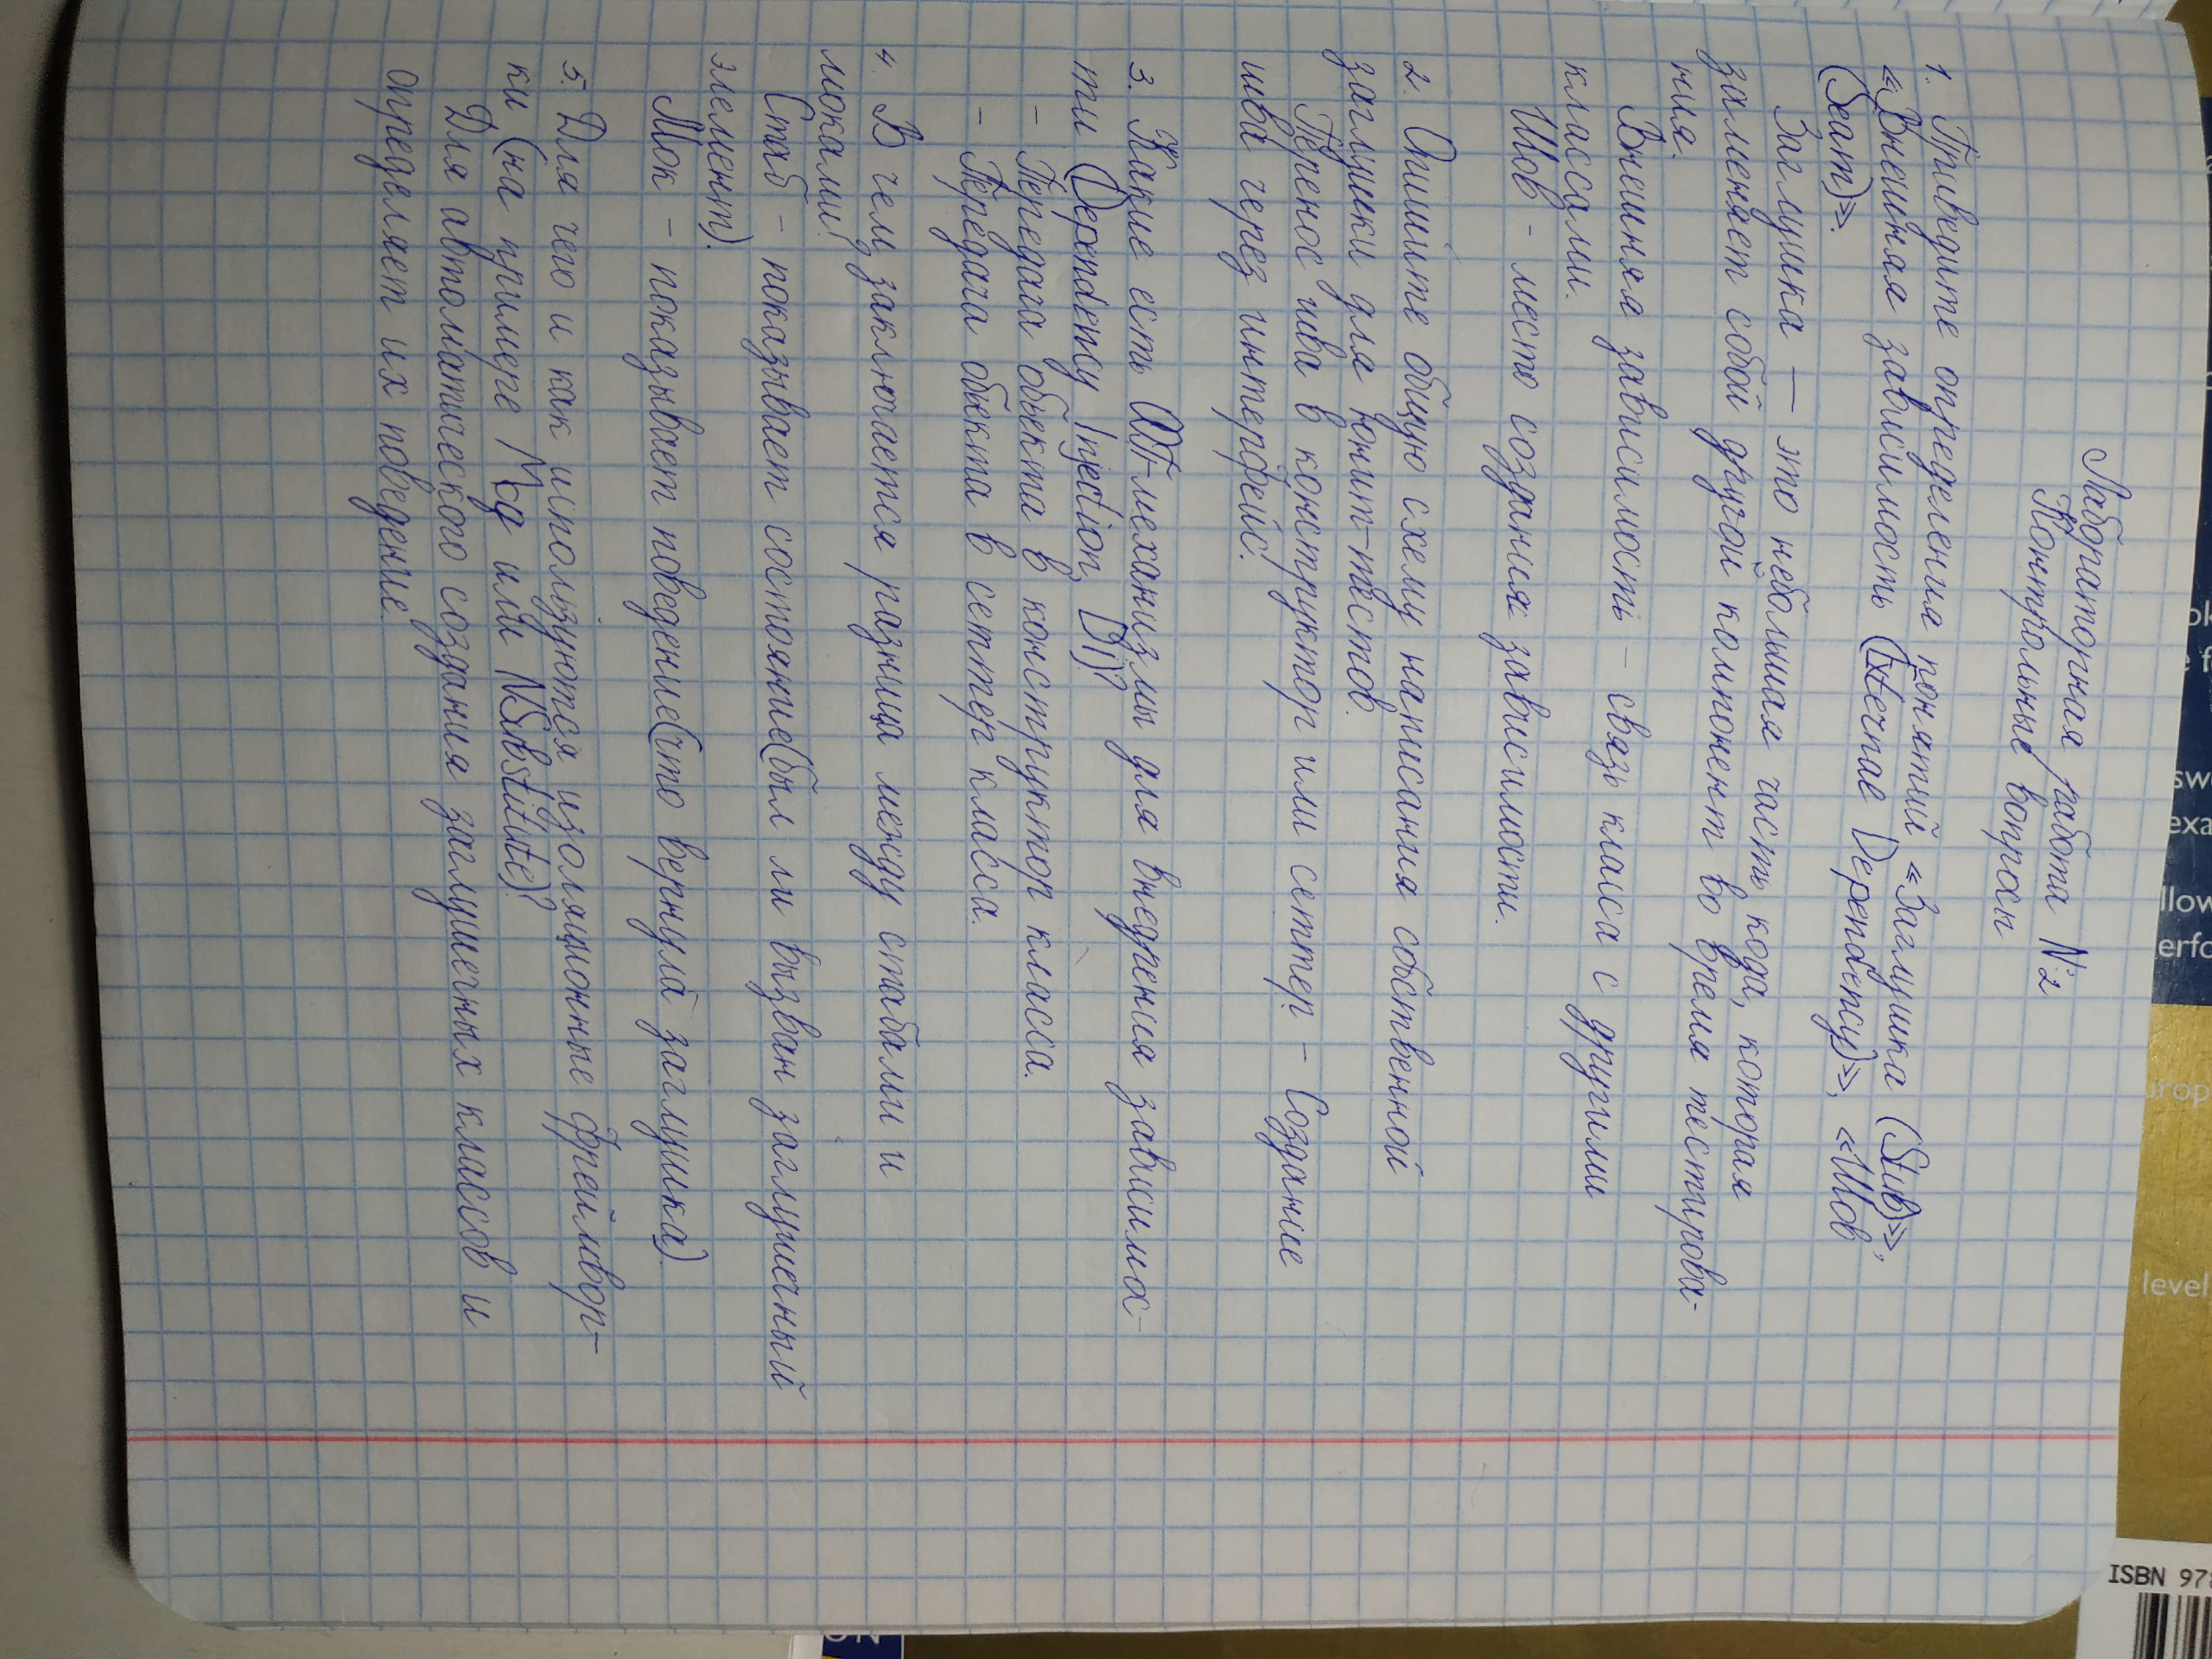 ISBN 97
level
Лабораторная работа №2
Контрольные вопросы
1. Приведите определения понятий «Заглушка (Stub)»,
«Внешняя зависимость (External Dependency)», «Шов
(Seam)».
Заглушка — это небольшая часть кода, которая
заменяет собой другой компонент во время тестирова-
ния.
Внешняя зависимость – связь класса с другими
классами.
Шов – место создания зависимости.
2. Опишите общую схему написания собственной
заглушки для юнит-тестов.
Перенос шва в конструктор или сеттер. – Создание
шва через интерфейс.
3. Какие есть ООП-механизмы для внедрения зависимос-
ти (Dependency Injection, DI)?
– Передача объекта в конструктор класса.
– Передача объекта в сеттер класса.
4. В чем заключается разница между стабами и
моками?
Стаб – показывает состояние(был ли вызван заглушечный
элемент).
Мок – показывает поведение(что вернула заглушка).
5. Для чего и как используются изоляционные фреймвор-
ки (на примере Moq или NSubstitute)?
Для автоматического создания заглушечных классов и
определяет их поведение.